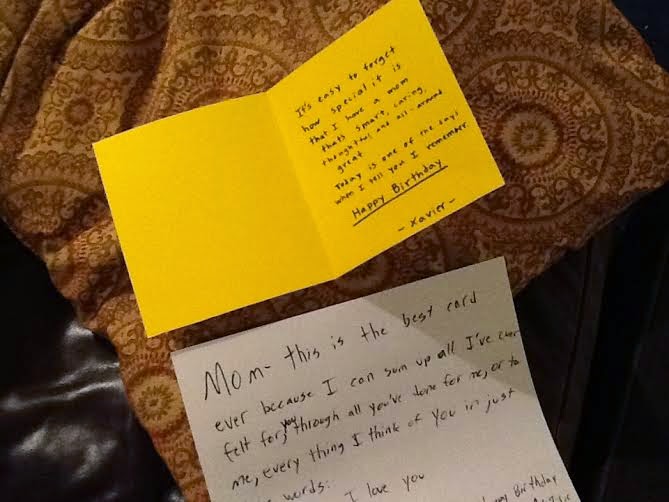 It's easy to forget
how special it is
that I have a mom
thats smart, caring,
thoughtful and all-around
great
Today is one of the days
when I tell you I remember
Happy Birthday
- Xavier -
Mom- this is the best card
ever because I can sum up all I've ever
felt for you, through all you've done for me, or to
me, every thing I think of you in just
words:
I love you
Birthday